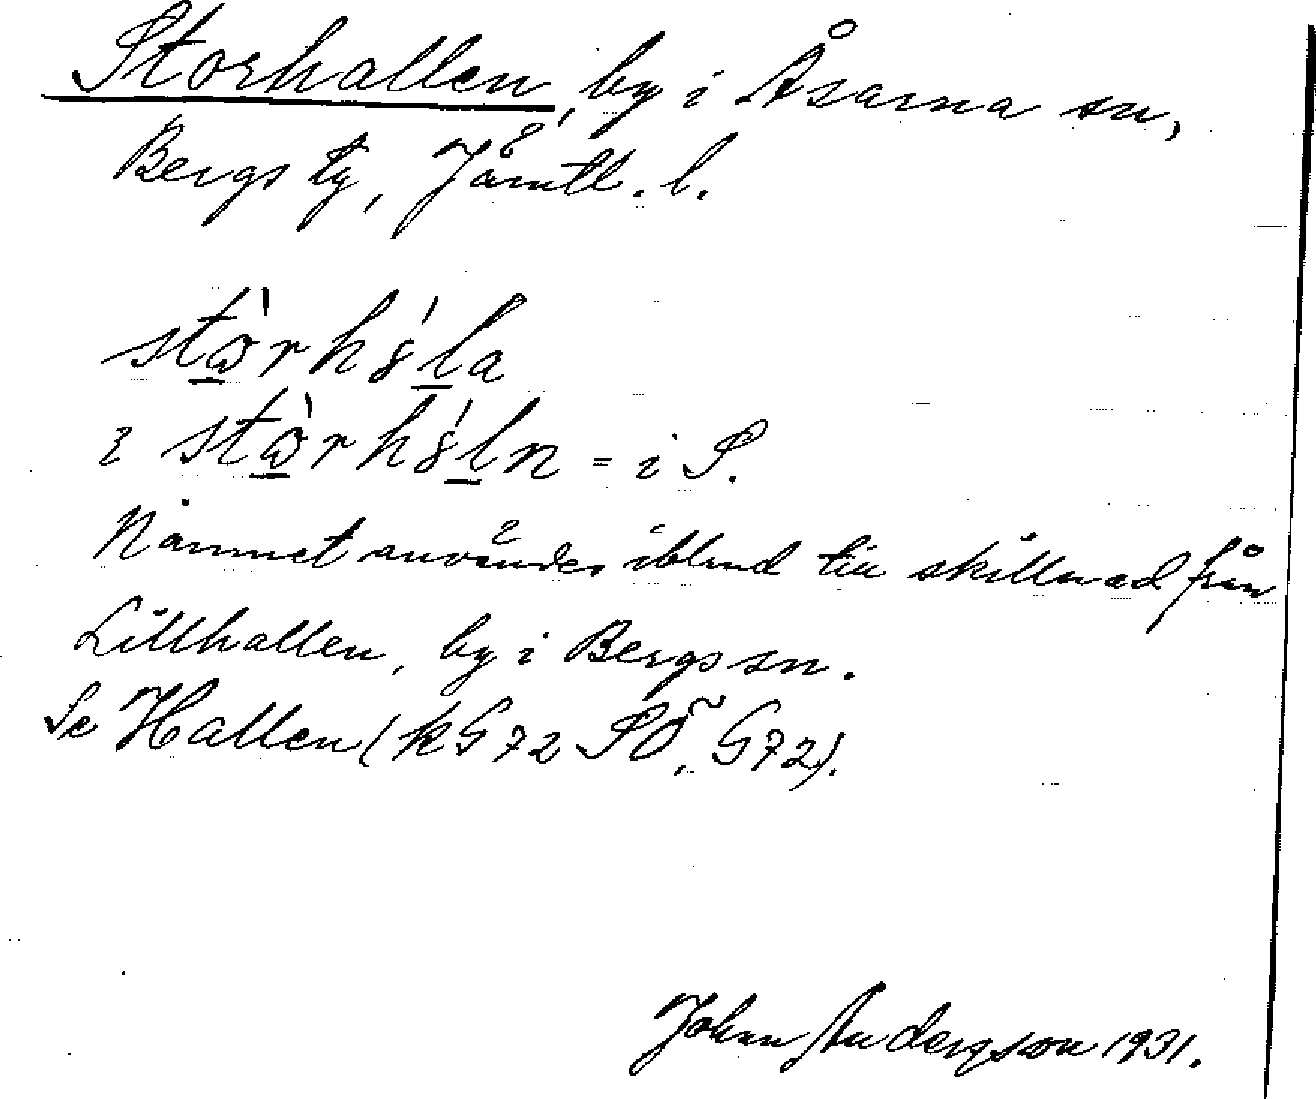 Storhallen, by i Åsarna sn,
Bergs tg, Jämtl. l.
i = i S.
Namnet användes ibland till skillnad från
Lillhallen, by i Bergs sn.
Se Hallen (kG72 SÖ, G72).
John Andersson 1931.